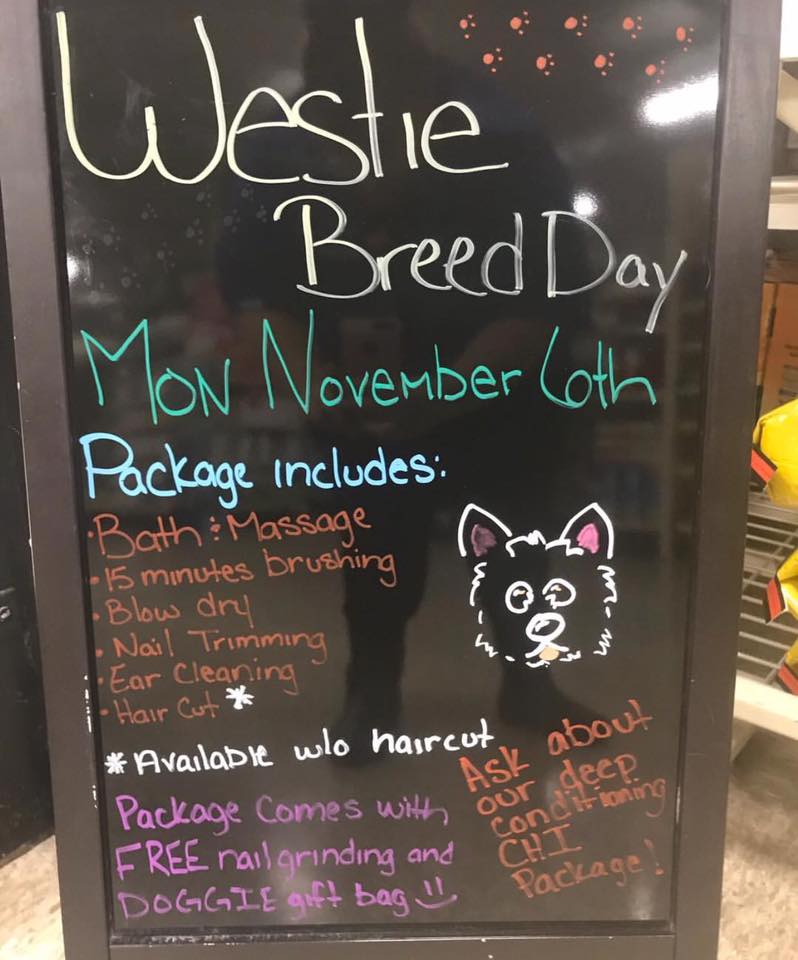 Westie
Breed Day
Mon November 6th
Package includes:
• Bath & Massage
• 15 minutes brushing
• Blow dry
• Nail Trimming
• Ear Cleaning
• Hair Cut *
* Available w/o haircut
Ask about
our deep
conditioning
CHI
Package!
Package Comes with
FREE nail grinding and
DOGGIE gift bag !!